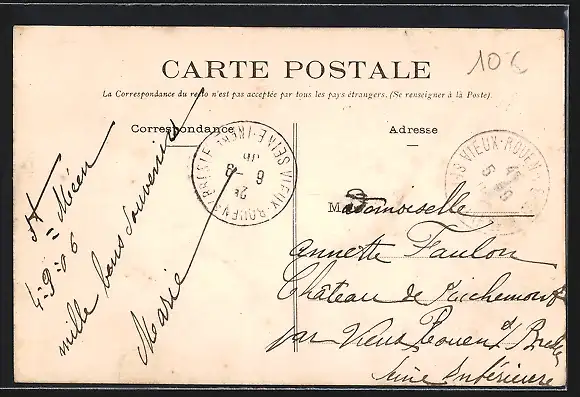 106
CARTE POSTALE
La Correspondance du recto n'est pas acceptée par tous les pays étrangers. (Se renseigner à la Poste).
Correspondance
Adresse
St Méen
4=9=06
mille bons souvenirs
Marie
Mademoiselle
Annette Faulon
Château de Richemont
par Vieux Rouen s/ Bresle
Seine Inférieure
VIEUX-ROUEN
SEINE-INFRE
VIEUX-ROUEN